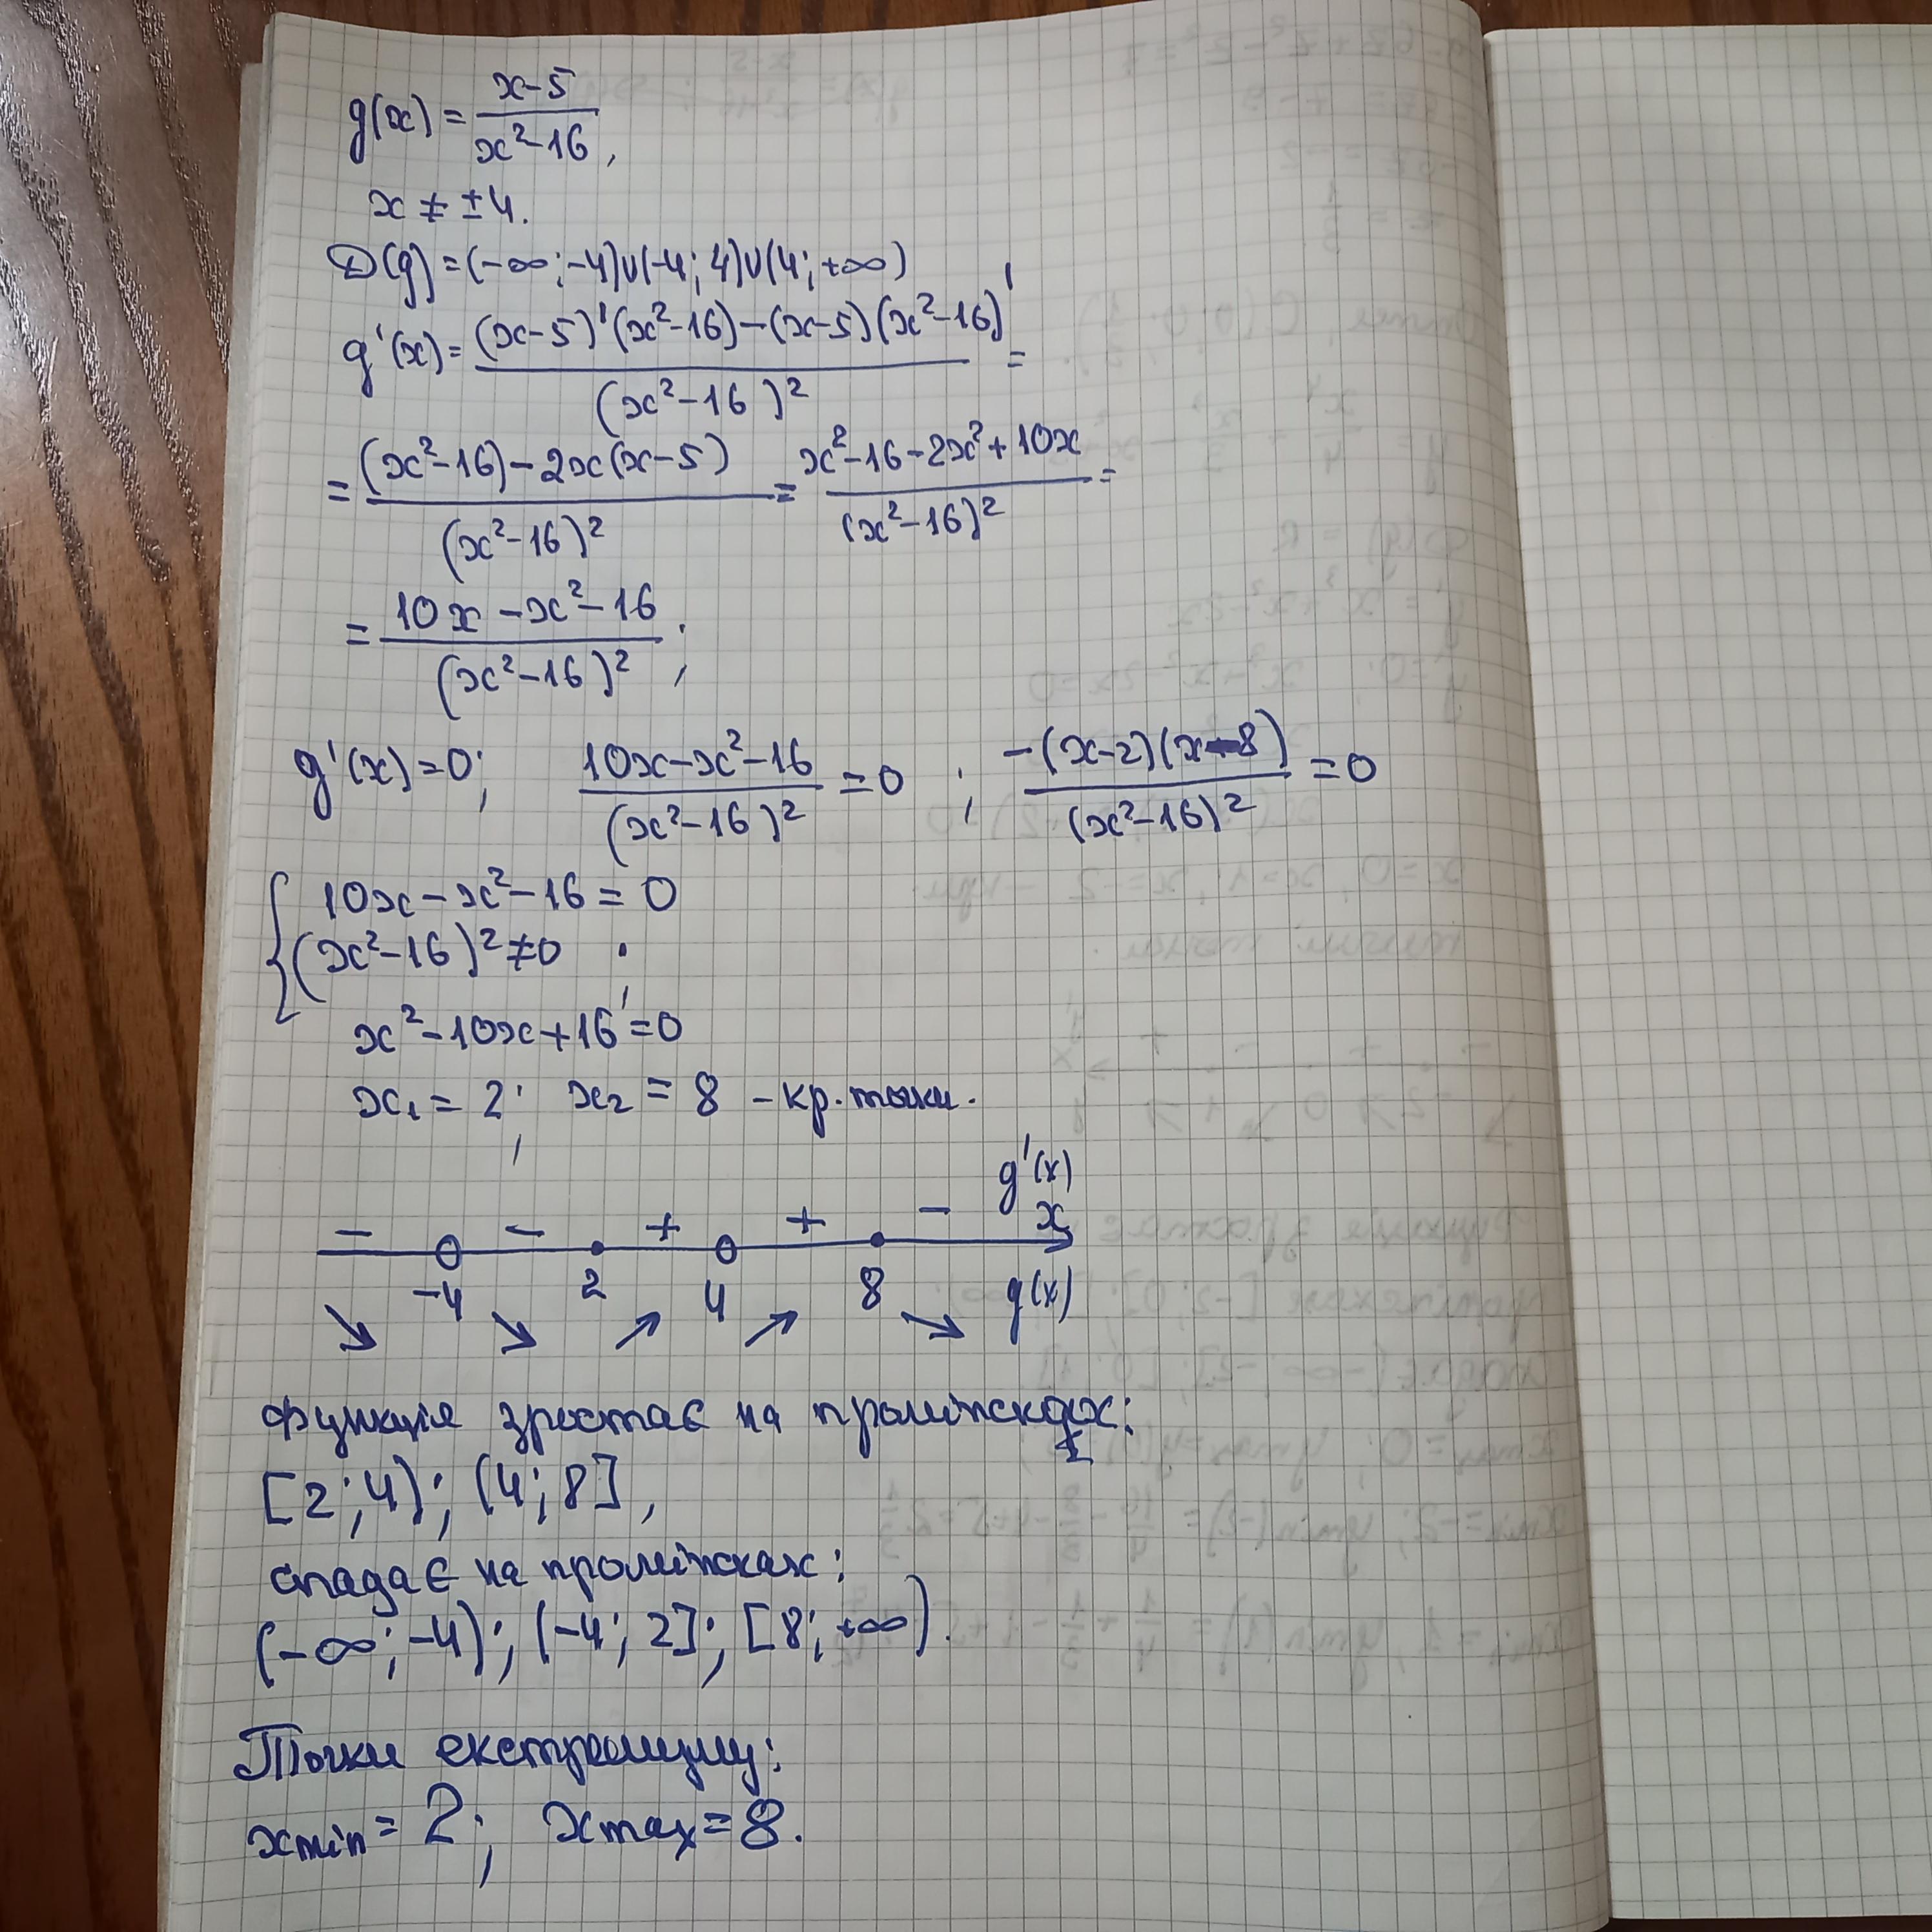 g(x) = (x-5)/(x²-16),
x ≠ ±4.
D(g) = (-∞; -4)∪(-4; 4)∪(4; +∞)
g'(x) = ((x-5)'(x²-16) - (x-5)(x²-16)')/(x²-16)² =
= ((x²-16) - 2x(x-5))/(x²-16)² = (x²-16-2x²+10x)/(x²-16)² =
= (10x - x² - 16)/(x²-16)²;
g'(x) = 0; (10x-x²-16)/(x²-16)² = 0; (-(x-2)(x-8))/(x²-16)² = 0
{ 10x - x² - 16 = 0
(x²-16)² ≠ 0;
x² - 10x + 16 = 0
x₁ = 2; x₂ = 8 - кр. точки.
g'(x)
- - + + - x
-4 2 4 8 g(x)
↘ ↘ ↗ ↗ ↘
Функція зростає на проміжках:
[2; 4); (4; 8],
спадає на проміжках:
(-∞; -4); (-4; 2]; [8; +∞).
Точки екстремуму:
xmin = 2; xmax = 8.